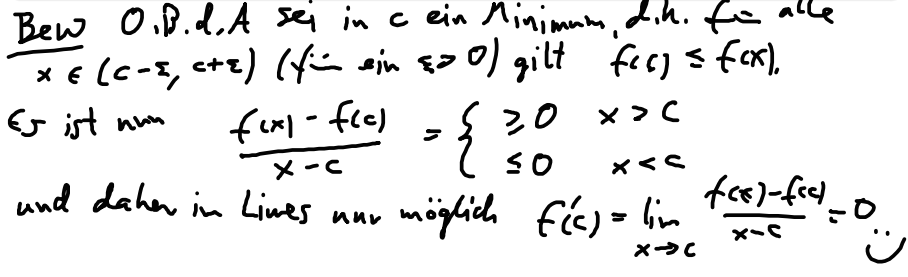 Bew O.B.d.A sei in c ein Minimum, d.h. für alle
x ∈ (c-ε, c+ε) (für ein ε>0) gilt f(c) ≤ f(x).
Es ist nun f(x) - f(c) / x - c = { ≥ 0 x > c
≤ 0 x < c
und daher im Limes nur möglich f'(c) = lim x→c f(x)-f(c) / x-c = 0